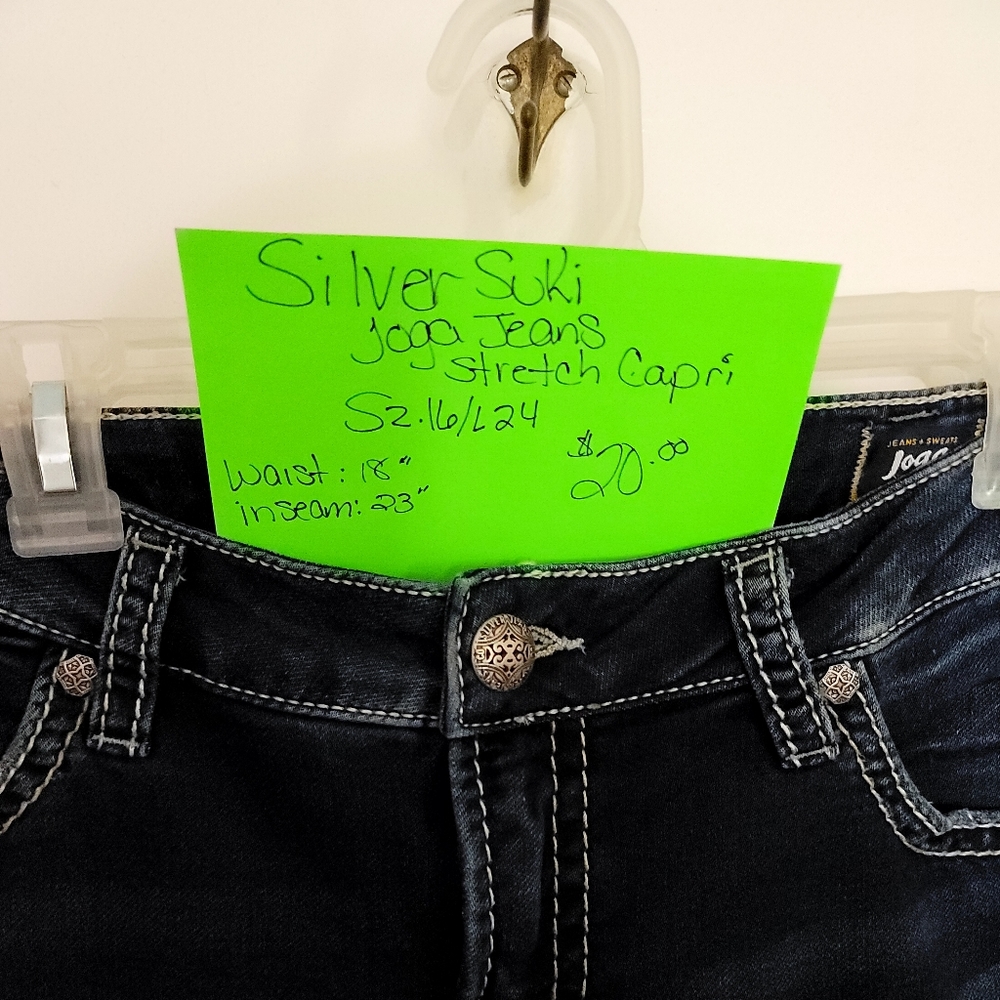 Silver Suki
Joga Jeans
Stretch Capri's
Sz.16/L24
$20.00
waist: 18"
inseam: 23"
JEANS + SWEATS
Joga